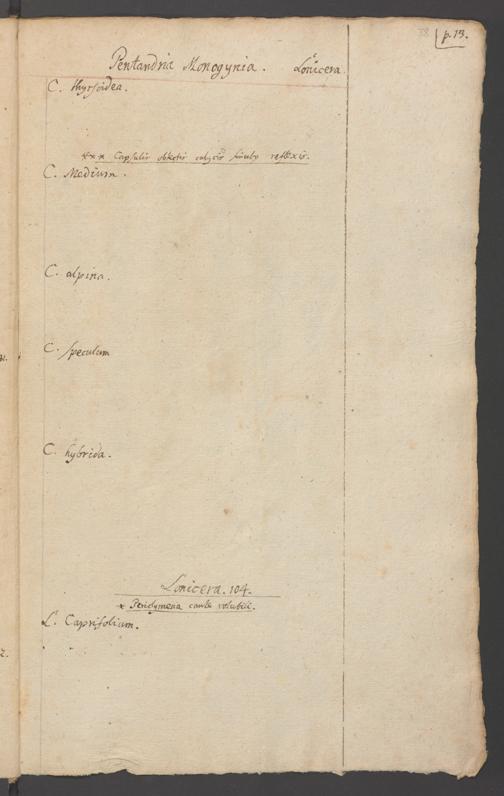 p. 13.
Pentandria Monogynia. Lonicera
C. thyrsoidea.
*** Capsulis obtectis calycis sinubus reflexis.
C. Medium.
C. alpina.
C. speculum
C. hybrida.
Lonicera. 104.
* Periclymena caule volubili.
L. Caprifolium.